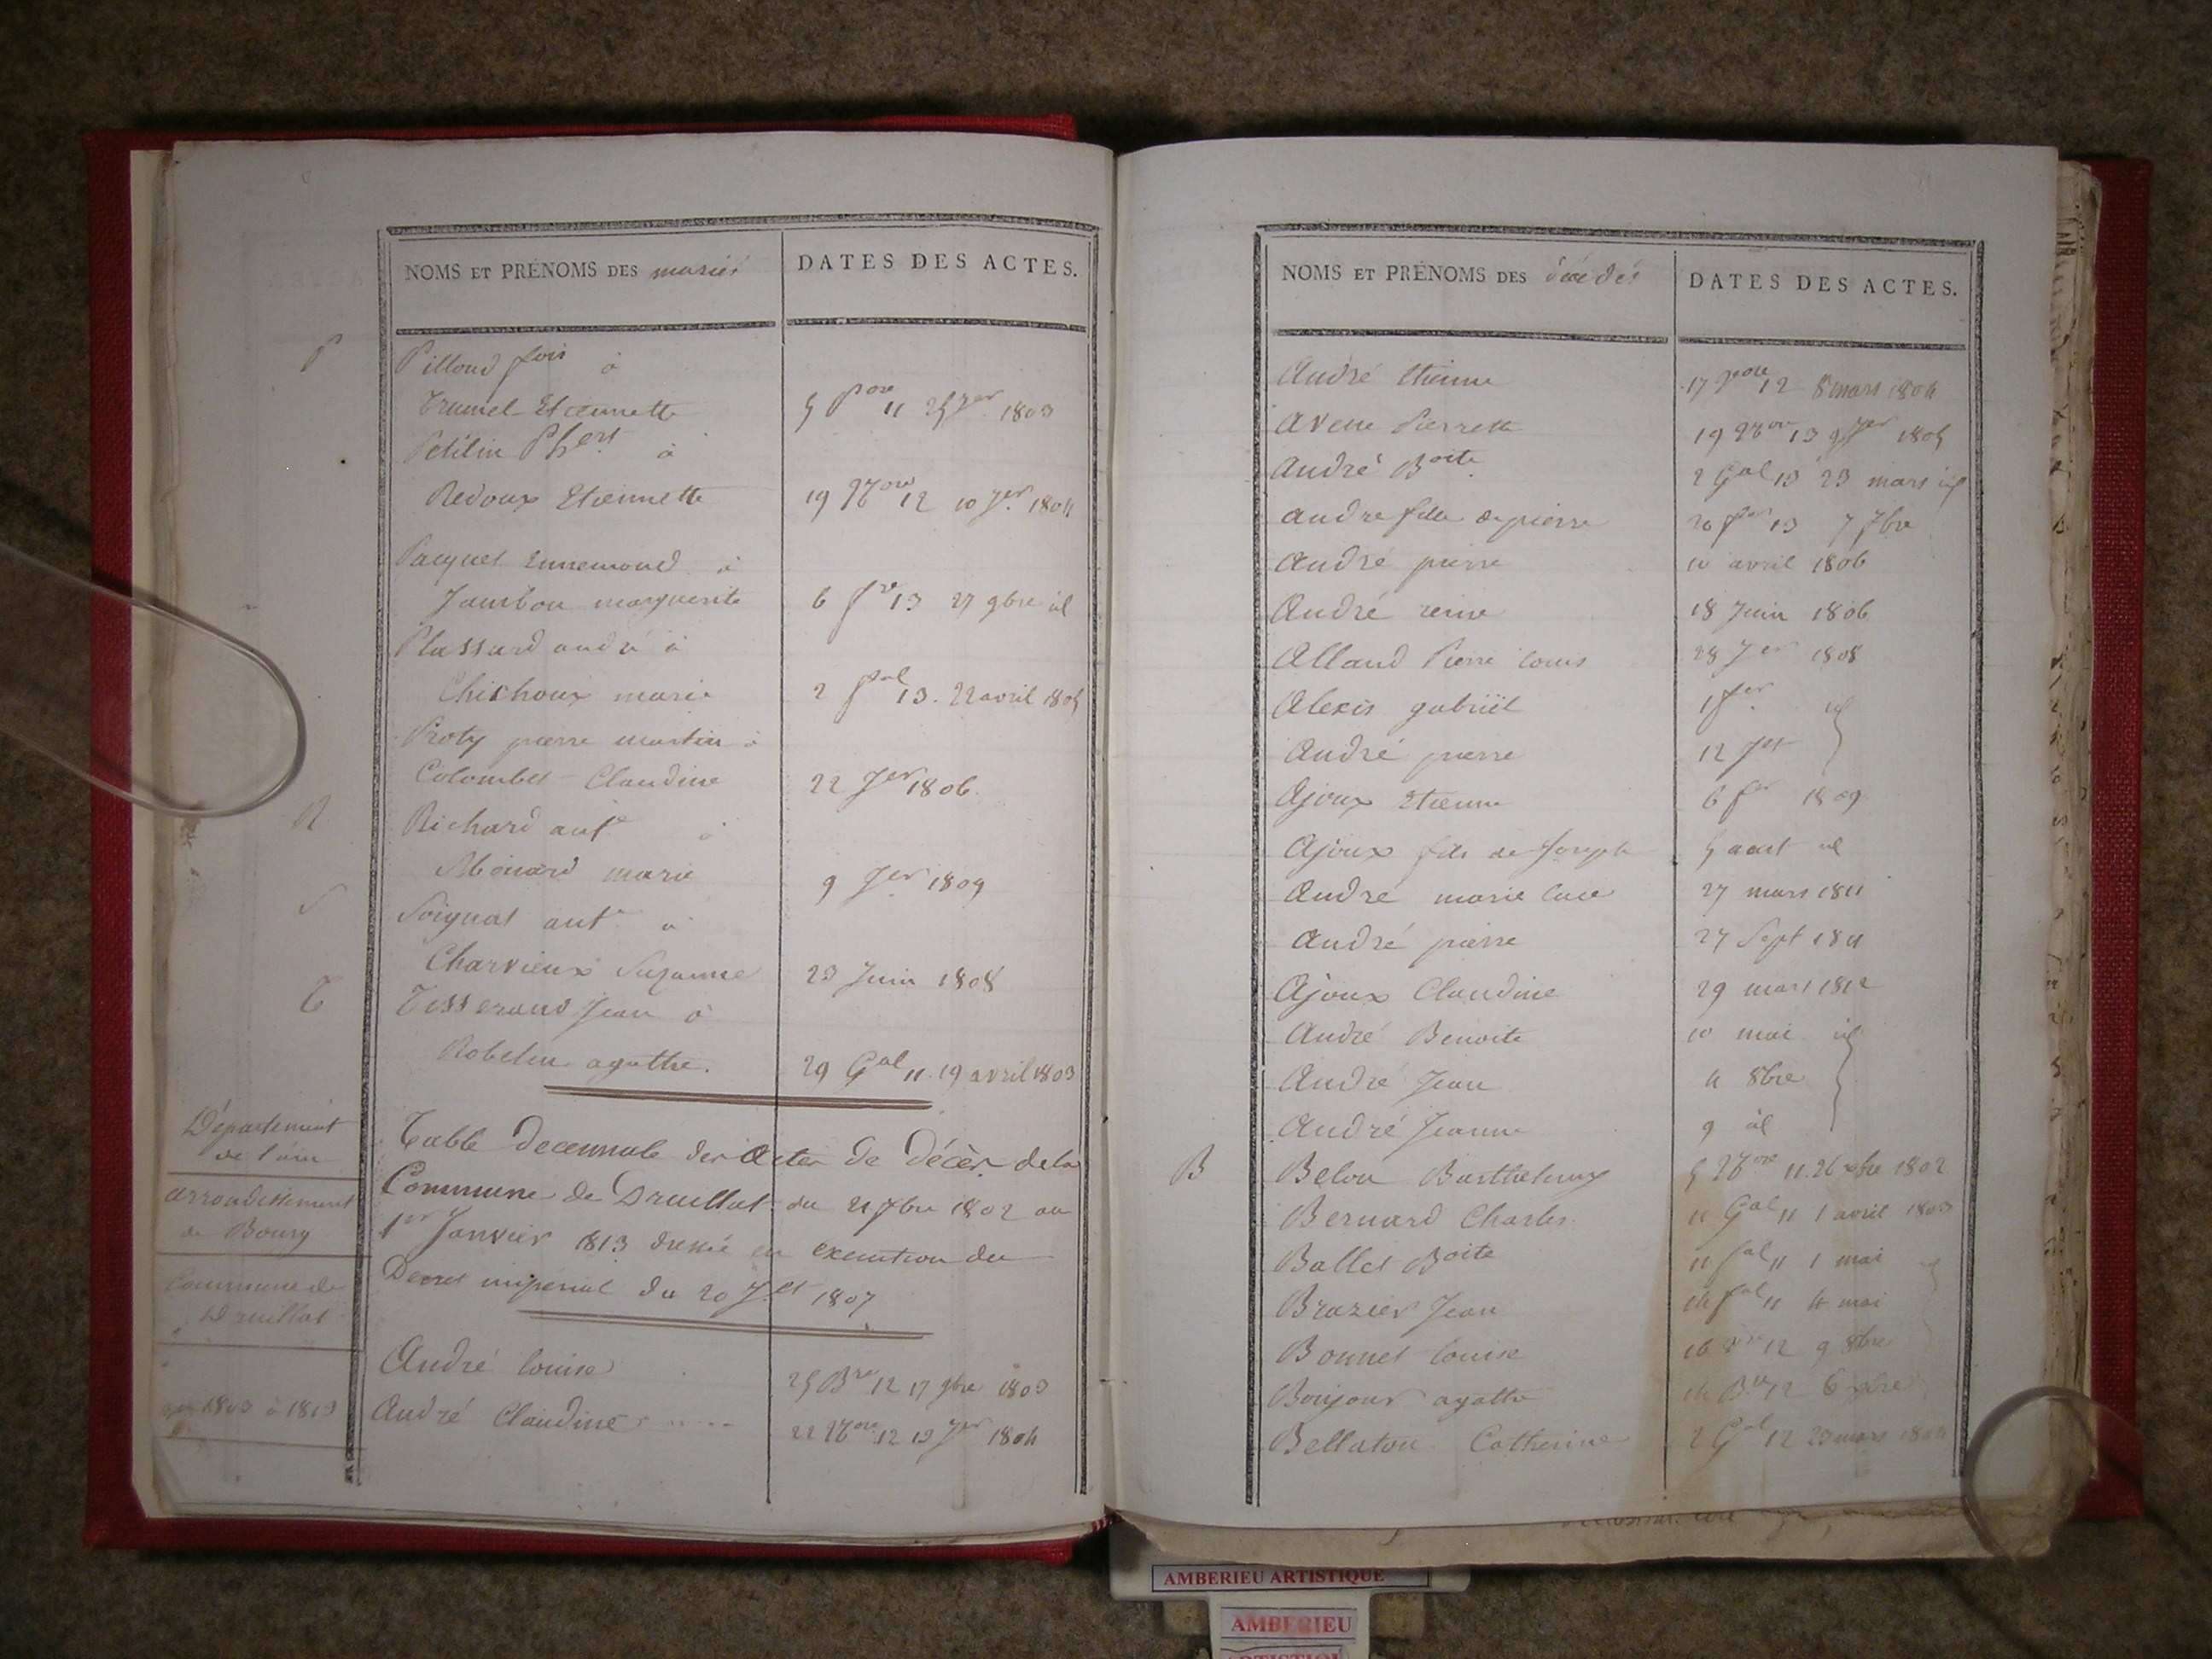 NOMS ET PRÉNOMS DES mariés
DATES DES ACTES.
P
Pilloud fois à
Trumel Etiennette 5 11 25 Jer 1803
Petitin Phert à
Redoux Etiennette 19 12 10 Jer. 1804
Pacquet Ennemond à
Jambon marguerite 6 13 27 9bre id
Plassard andré à
Chichoux marie 2 13. 22 avril 1805
Proty pierre martin à
Colombet Claudine 22 Jer 1806.
R
Richard ante à
Monard marie 9 Jer 1809
S
Soignat ante à
Charvieux Suzanne 23 Juin 1808
T
Tisserand Jean à
Robelin agathe. 29 Gal 11. 19 avril 1803
Département
de l'ain
arrondissement
de Bourg
Commune de
Druillat
1803 à 1813
Table decennale des Actes de décès de la
Commune de Druillat du 21 7bre 1802 au
1er Janvier 1813 dressé en execution du
Decret impérial du 20 Jet 1807
André louise 25 Bre 12 17 9bre 1803
André Claudine 22 12 13 Jer 1804
NOMS ET PRÉNOMS DES décédés
DATES DES ACTES.
André Etienne 17 12 8 mars 1804
Avene Pierrette 19 13 9 Jer 1805
André Boite 2 Gal 13 23 mars id
andre fille de pierre 20 13 7 7bre
André pierre 10 avril 1806
André reine 18 Juin 1806
Alland Pierre louis 28 Jer 1808
Alexis gabriël 1 fer id
André pierre 12
Ajoux Etienne 6 fer 1809
Ajoux fils de Joseph 5 aout id
André marie luce 27 mars 1811
André pierre 27 Sept 1811
Ajoux Claudine 29 mars 1812
André Benoite 10 mai id
André Jean 4 8bre
André Jeanne 9 id
B
Belou Barthelemy 5 11. 26 xbre 1802
Bernard Charles 11 Gal 11 1 avril 1803
Ballet Boite 11 fal 11 1 mai
Brazier Jean 14 fal 11 4 mai
Bonnet louise 16 12 9 8bre
Bonjour agathe 14 12 6 xbre
Bellaton Catherine 2 Gal 12 23 mars 1804
AMBERIEU ARTISTIQUE
AMBERIEU